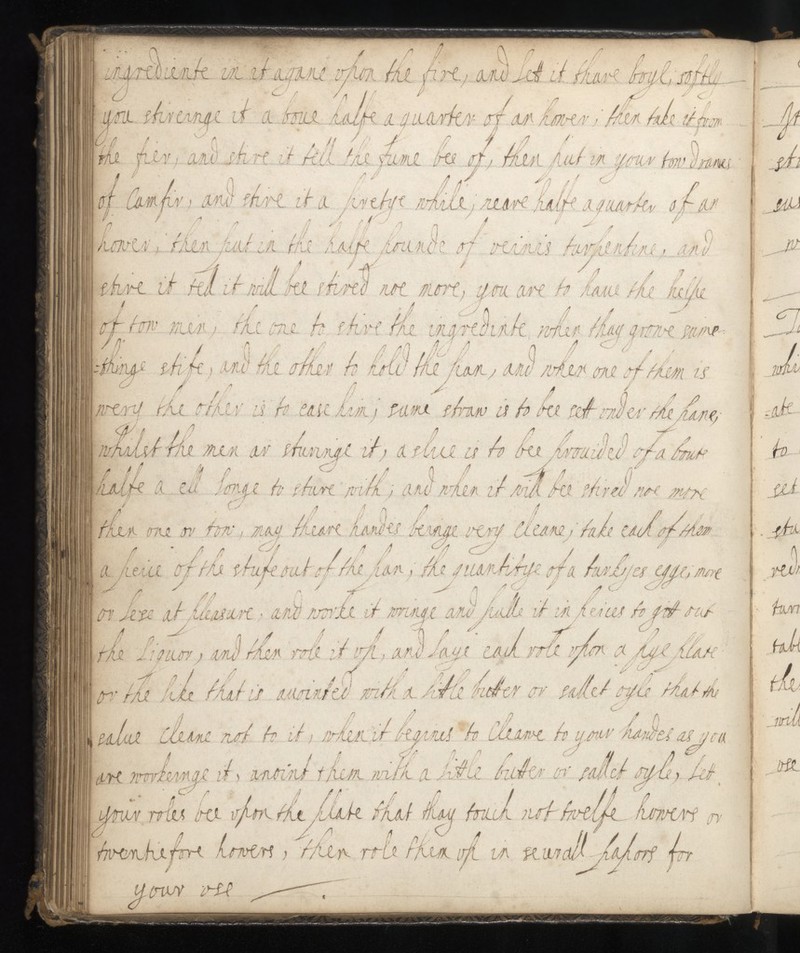 ingrediente in it agane vpon the fire, and Lett it thare boyl, softly
you stireinge it a boue halfe a quarter of an hower, then take it from
the fier, and stire it till the fume bee of, then put in your tow drams
of Camfir, and stire it a pretye while, neare halfe a quarter of an
hower, then put in the halfe pounde of veinis turpentine, and
stire it tell it will bee stired noe more, you are to haue the helpe
of tow men, the one to stire the ingredinte when thay growe sume=
=thinge stife, and the other to hold the pan, and when one of them is
wery the other is to ease him; sume straw is to bee sett vnder the pane,
whilst the men ar sturinge it, a slice is to bee prouided of a boute
halfe a ell Longe to sture with; and when it will bee stired noe more
then one or tow, may theare handes beinge very Cleane, take each of them
a peice of the stufe out of the pan, the quantitye of a turkyes egge, more
or Lese at pleasure, and worke it wringe and pulle it in peices to gett out
the Liquor, and then role it vp, and Laye each role vpon a pye plate
or the like that is anointed with a little butter or sallet oyle that the
salue Cleane not to it, when it begines to Cleawe to your handes as you
are workeinge it, anoint them with a little butter or sallet oyle, Lett
your roles bee vpon the plate that thay touch not twelfe howers or
twentiefore howers, then role them vp in seurall papors for
your vse